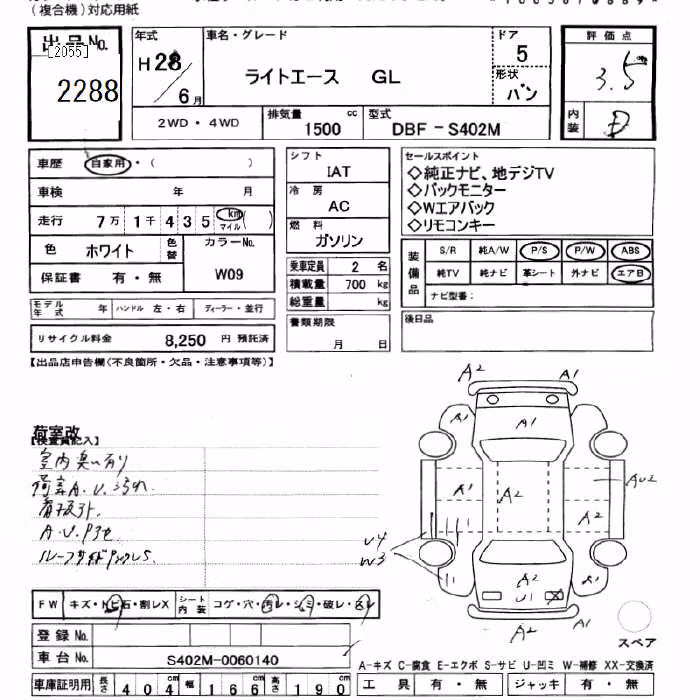 (複合機)対応用紙
出品No.
[2055]
2288
年式
H 28
6 月
車名・グレード
ライトエース GL
ドア
5
形状
バン
評価点
3.5
内装
D
2WD・4WD
排気量 cc
1500
型式
DBF－S402M
車歴 自家用・( )
車検 年 月
走行 7万1千435 km マイル ( )
色 ホワイト 色替
カラーNo.
W09
保証書 有・無
シフト
IAT
冷房
AC
燃料
ガソリン
乗車定員 2 名
積載量 700 kg
総重量 kg
セールスポイント
◇純正ナビ、地デジTV
◇バックモニター
◇Wエアバック
◇リモコンキー
装備品
S/R 純A/W P/S P/W ABS
純TV 純ナビ 革シート 外ナビ エアB
ナビ型番:
モデル年式 年 ハンドル 左・右 ディーラー・並行
リサイクル料金 8,250 円 預託済
書類期限
月 日
後日品
【出品店申告欄(不良箇所・欠品・注意事項等)】
荷室改
【検査員記入】
室内臭い有り
荷室A.U.汚れ
看板引
A.U.P他
A2 A1
A1 A1
A1 A2 AU2
A2
U4
W3
A2
U1 X
A2
A2 A1
FW キズ・トビ石・割レX
シート内装 コゲ・穴・汚レ・シミ・破レ・スレ
登録No.
車台No. S402M-0060140
車庫証明用 長さ 404 cm 幅 166 cm 高さ 190 cm
スペア
A－キズ C－腐食 E－エクボ S－サビ U－凹ミ W－補修 XX－交換済
工具 有・無 ジャッキ 有・無